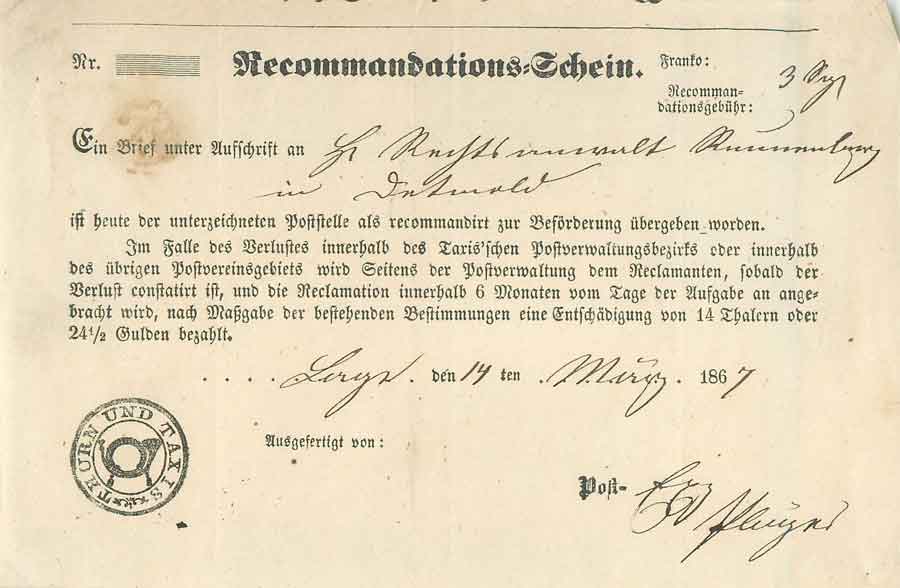 Nr.
Recommandations-Schein.
Franko:
3 Sgr
Recomman-
dationsgebühr:
Ein Brief unter Aufschrift an H Rechtsanwalt
in Detmold
ist heute der unterzeichneten Poststelle als recommandirt zur Beförderung übergeben worden.
Im Falle des Verlustes innerhalb des Taxis'schen Postverwaltungsbezirks oder innerhalb
des übrigen Postvereinsgebiets wird Seitens der Postverwaltung dem Reclamanten, sobald der
Verlust constatirt ist, und die Reclamation innerhalb 6 Monaten vom Tage der Aufgabe an ange-
bracht wird, nach Maßgabe der bestehenden Bestimmungen eine Entschädigung von 14 Thalern oder
24½ Gulden bezahlt.
. . . . Lage. den 14 ten . März. 1867
Ausgefertigt von:
THURN UND TAXIS
Post-